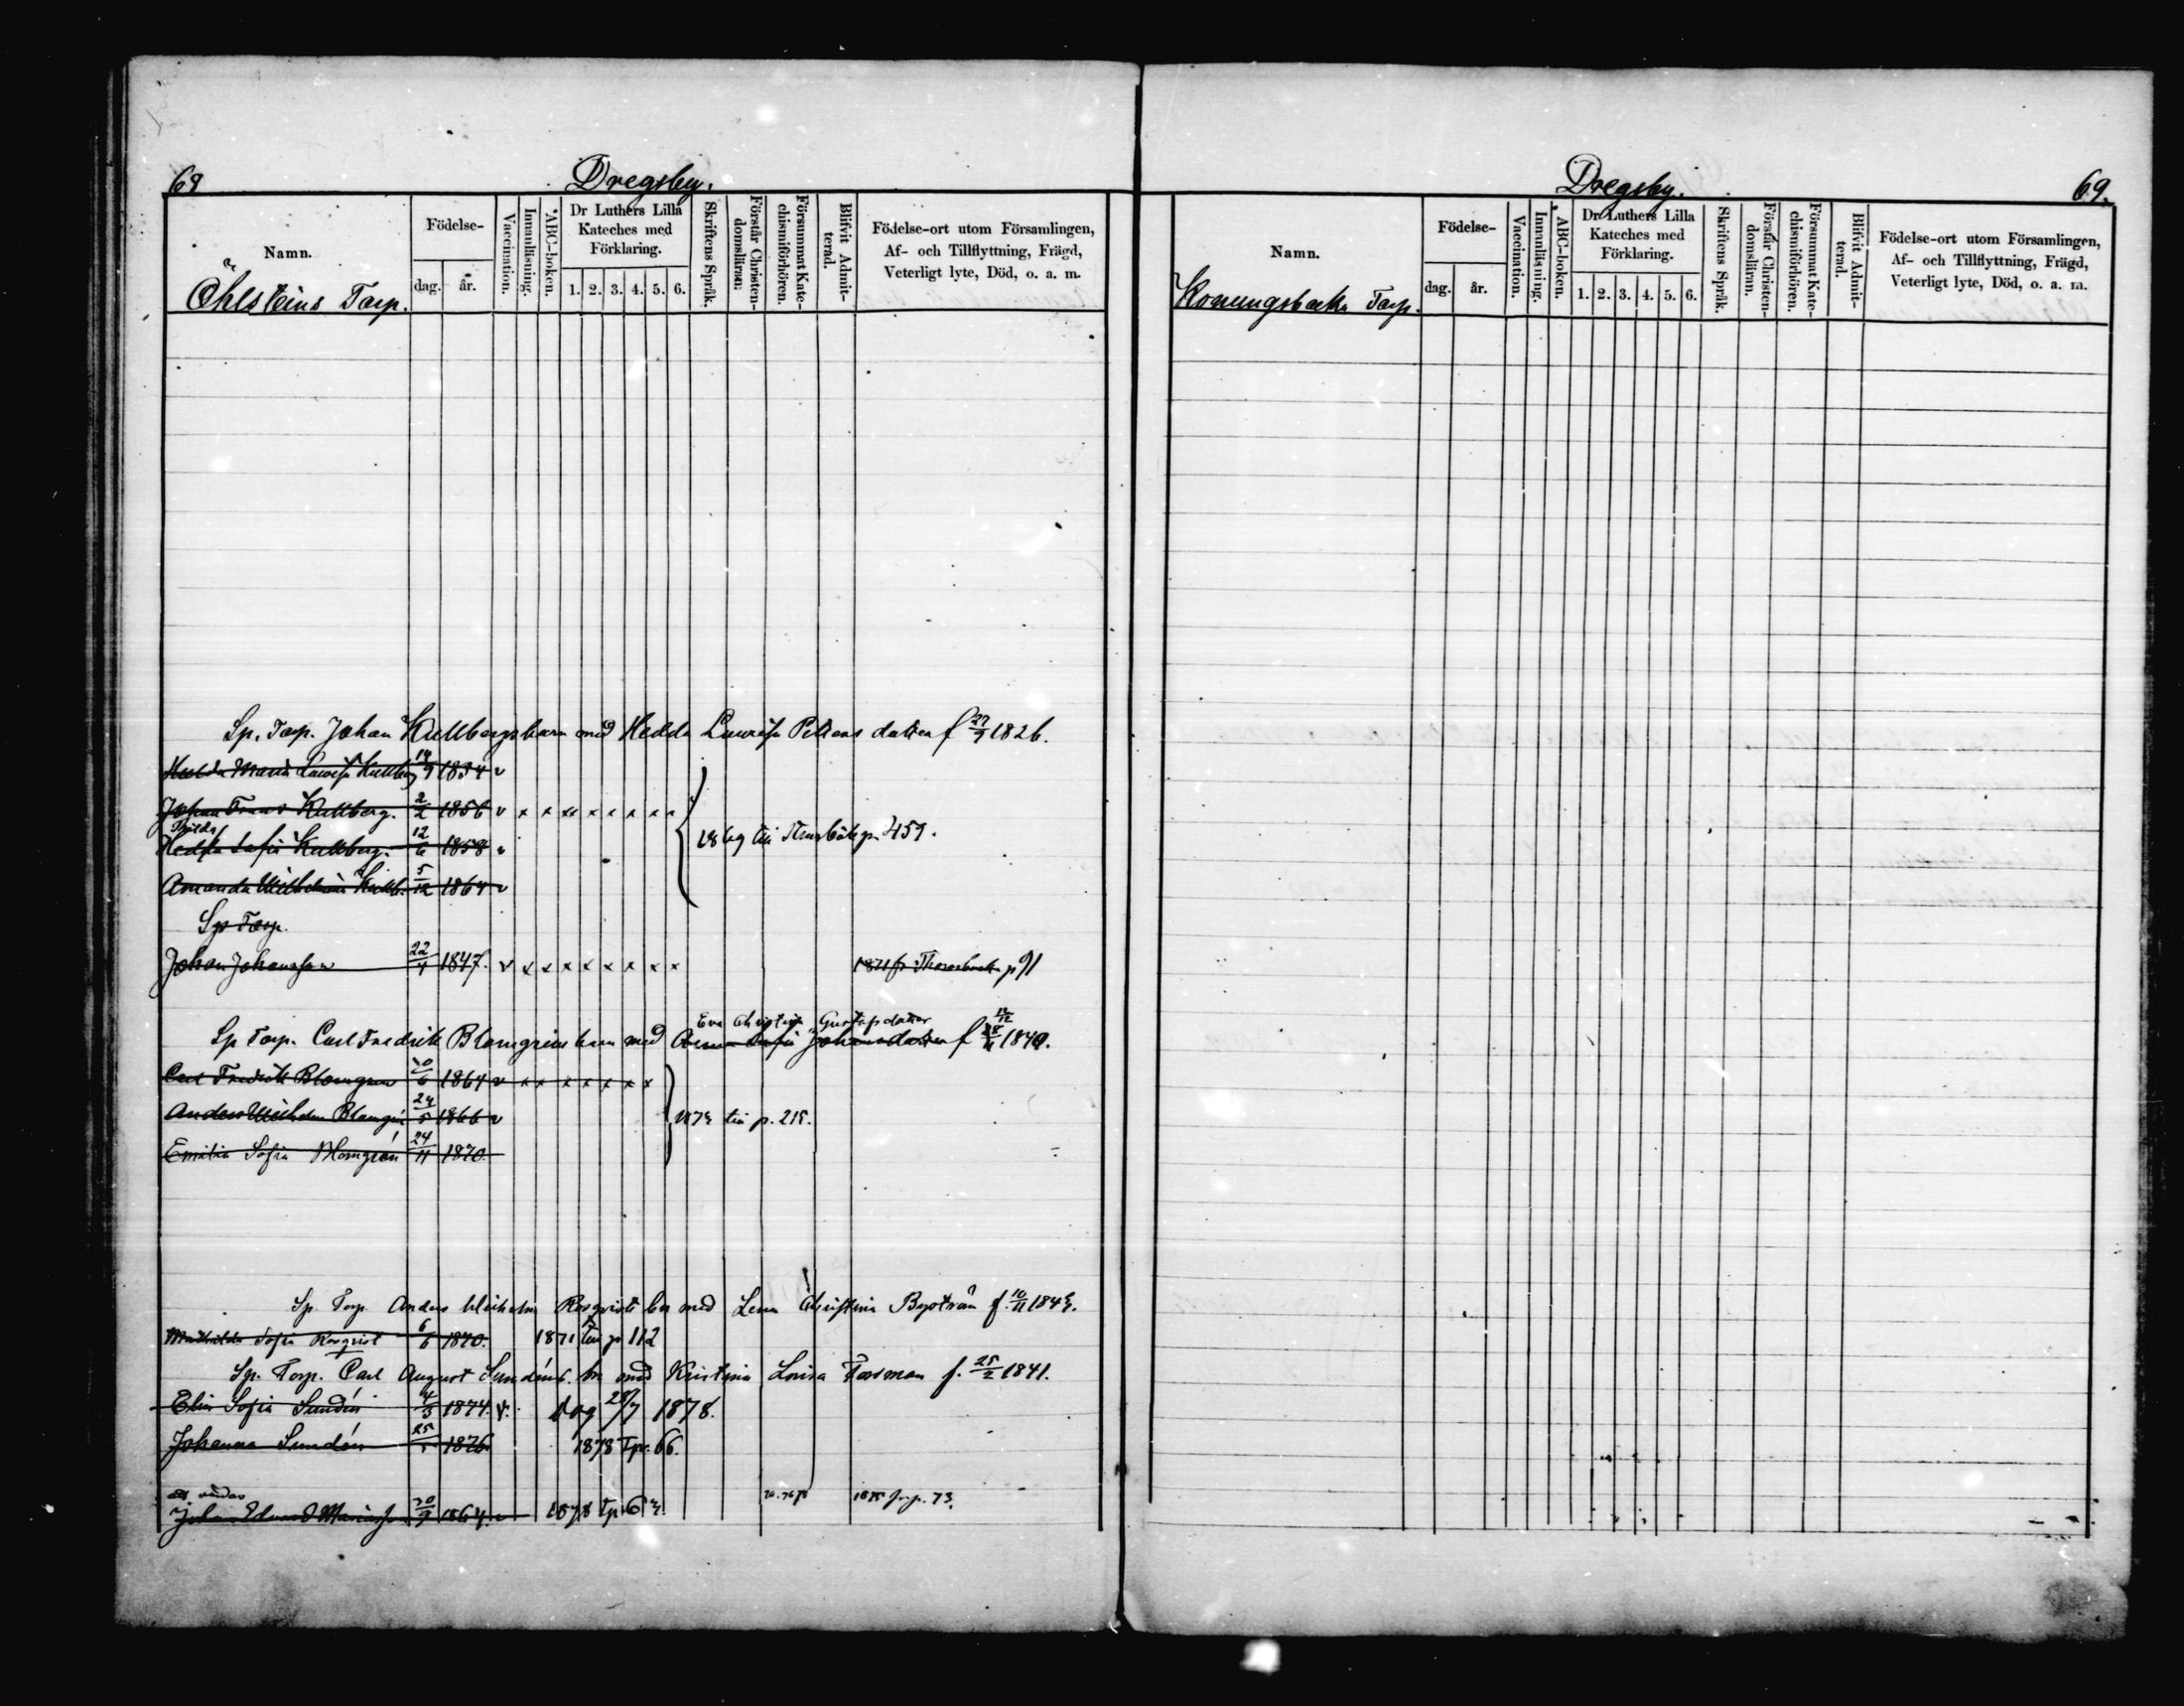 68
Dregsby.
Namn.
Födelse-
dag. år.
Vaccination.
Innanläsning.
ABC-boken.
Dr Luthers Lilla Kateches med Förklaring.
1. 2. 3. 4. 5. 6.
Skriftens Språk.
Förstår Christen-domsläran.
Försummat Kate-chismiförhören.
Blifvit Admit-terad.
Födelse-ort utom Församlingen,
Af- och Tillflyttning, Frägd,
Veterligt lyte, Död, o. a. m.
Öhlsteins Torp.
Sp. Torp. Johan Kullbergs barn med Hedda Lovisa Petters dotter f 27/9 1826.
Hulda Maria Lovisa Kullberg 14/9 1854 v
Johan Frans Kullberg. 2/2 1856 v x x x x x x x x
Hilda
Hedda Sofia Kullberg. 12/6 1858 v
1869 till p. 459.
Amanda Wilhelmina Kullb. 5/12 1864 v
Sp Torp.
Johan Johansson 22/4 1847. v x x x x x x x x 1871 fr p 91
Eva Christina Gustafsdotter
Sp Torp. Carl Fredrik Blomgréns barn med Sofia Johansdotter f 1840.
Carl Fredrik Blomgren 20/6 1864 v x x x x x x x
Anders Wilhelm Blomgrén 24/5 1866 v
till p. 215.
Emilia Sofia Blomgrén 24/11 1870.
Sp. Torp. Anders Wilhelm Rosqvists bn med Lena Christina Byström f. 10/11
Mathilda Sofia Rosqvist 6/6 1870. 1871 till p 112
Sp. Torp. Carl August Sundéns. bn med Kristina Lovisa Forsman f. 25/2 1841.
Elin Sofia Sundén 4/3 1874. v. Dog 28/7 1878.
Johanna Sundén 25 1876 1878 T p. 66.
Johan Edvard 20/9 1864. v 1878 T p 1875 fr p. 73.
Dregsby.
69.
Namn.
Födelse-
dag. år.
Vaccination.
Innanläsning.
ABC-boken.
Dr Luthers Lilla Kateches med Förklaring.
1. 2. 3. 4. 5. 6.
Skriftens Språk.
Förstår Christen-domsläran.
Försummat Kate-chismiförhören.
Blifvit Admit-terad.
Födelse-ort utom Församlingen,
Af- och Tillflyttning, Frägd,
Veterligt lyte, Död, o. a. m.
Konungsbacka Torp.